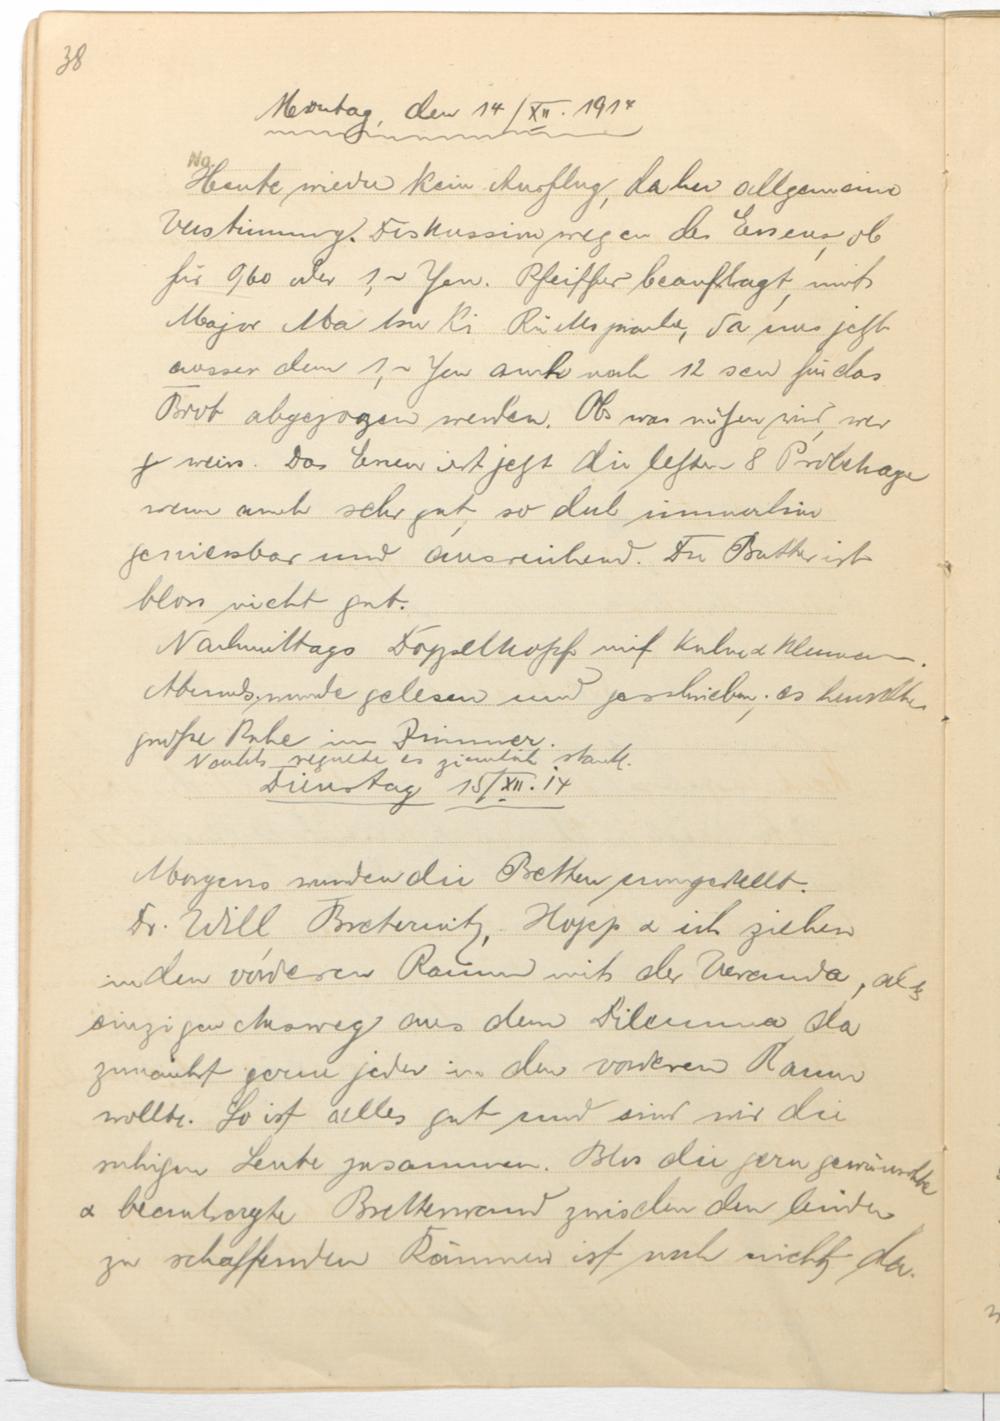 38
Montag, den 14/XII. 1914
No.
Heute wieder kein Ausflug, daher allgemeine
Verstimmung. Diskussion wegen des Essens, ob
für 960 oder 1,- Yen. Pfeiffer beauftragt, mit
Major Matsu Ki Rücksprache, da uns jetzt
ausser dem 1,- Yen auch noch 12 sen für das
Brot abgezogen werden. Obs was nützen wird, wer
weiss. Das Essen ist jetzt die letzten 8 Probetage
wenn auch sehr gut, so doch immerhin
geniessbar und ausreichend. Die Butter ist
bloss nicht gut.
Nachmittags Doppelkopf mit &
Abends wurde gelesen und geschrieben, es herrschte
große Ruhe im Zimmer.
Nachts regnete es ziemlich stark.
Dienstag 15/XII. 14
Morgens wurden die Betten umgestellt.
Dr. Will, Breternitz, Hopp & ich ziehen
in den vorderen Raum mit der Veranda, als
einzigen Ausweg aus dem Dilemma, da
zunächst gerne jeder in den vorderen Raum
wollte. So ist alles gut und sind wir die
ruhigen Leute zusammen. Blos die gern gewünschte
& beantragte Bretterwand zwischen den beiden
zu schaffenden Räumen ist noch nicht da.